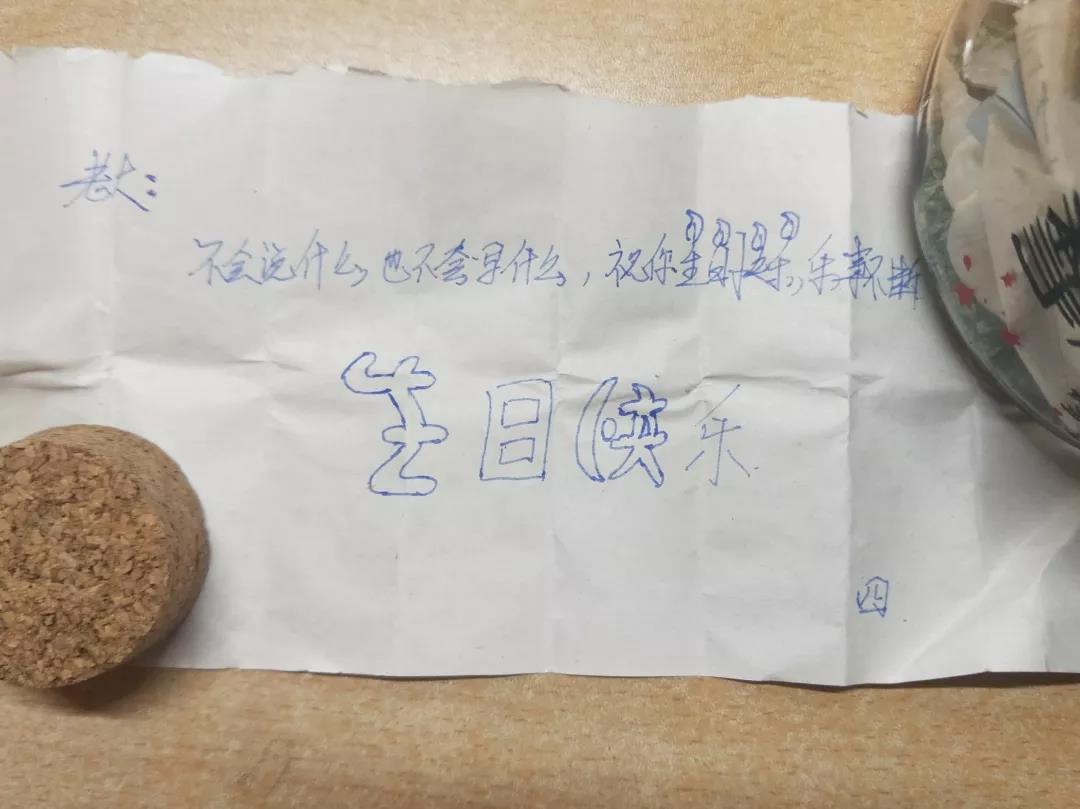 老大:
不会说什么,也不会写什么,祝你生日快乐,乐事不断
生日快乐
四